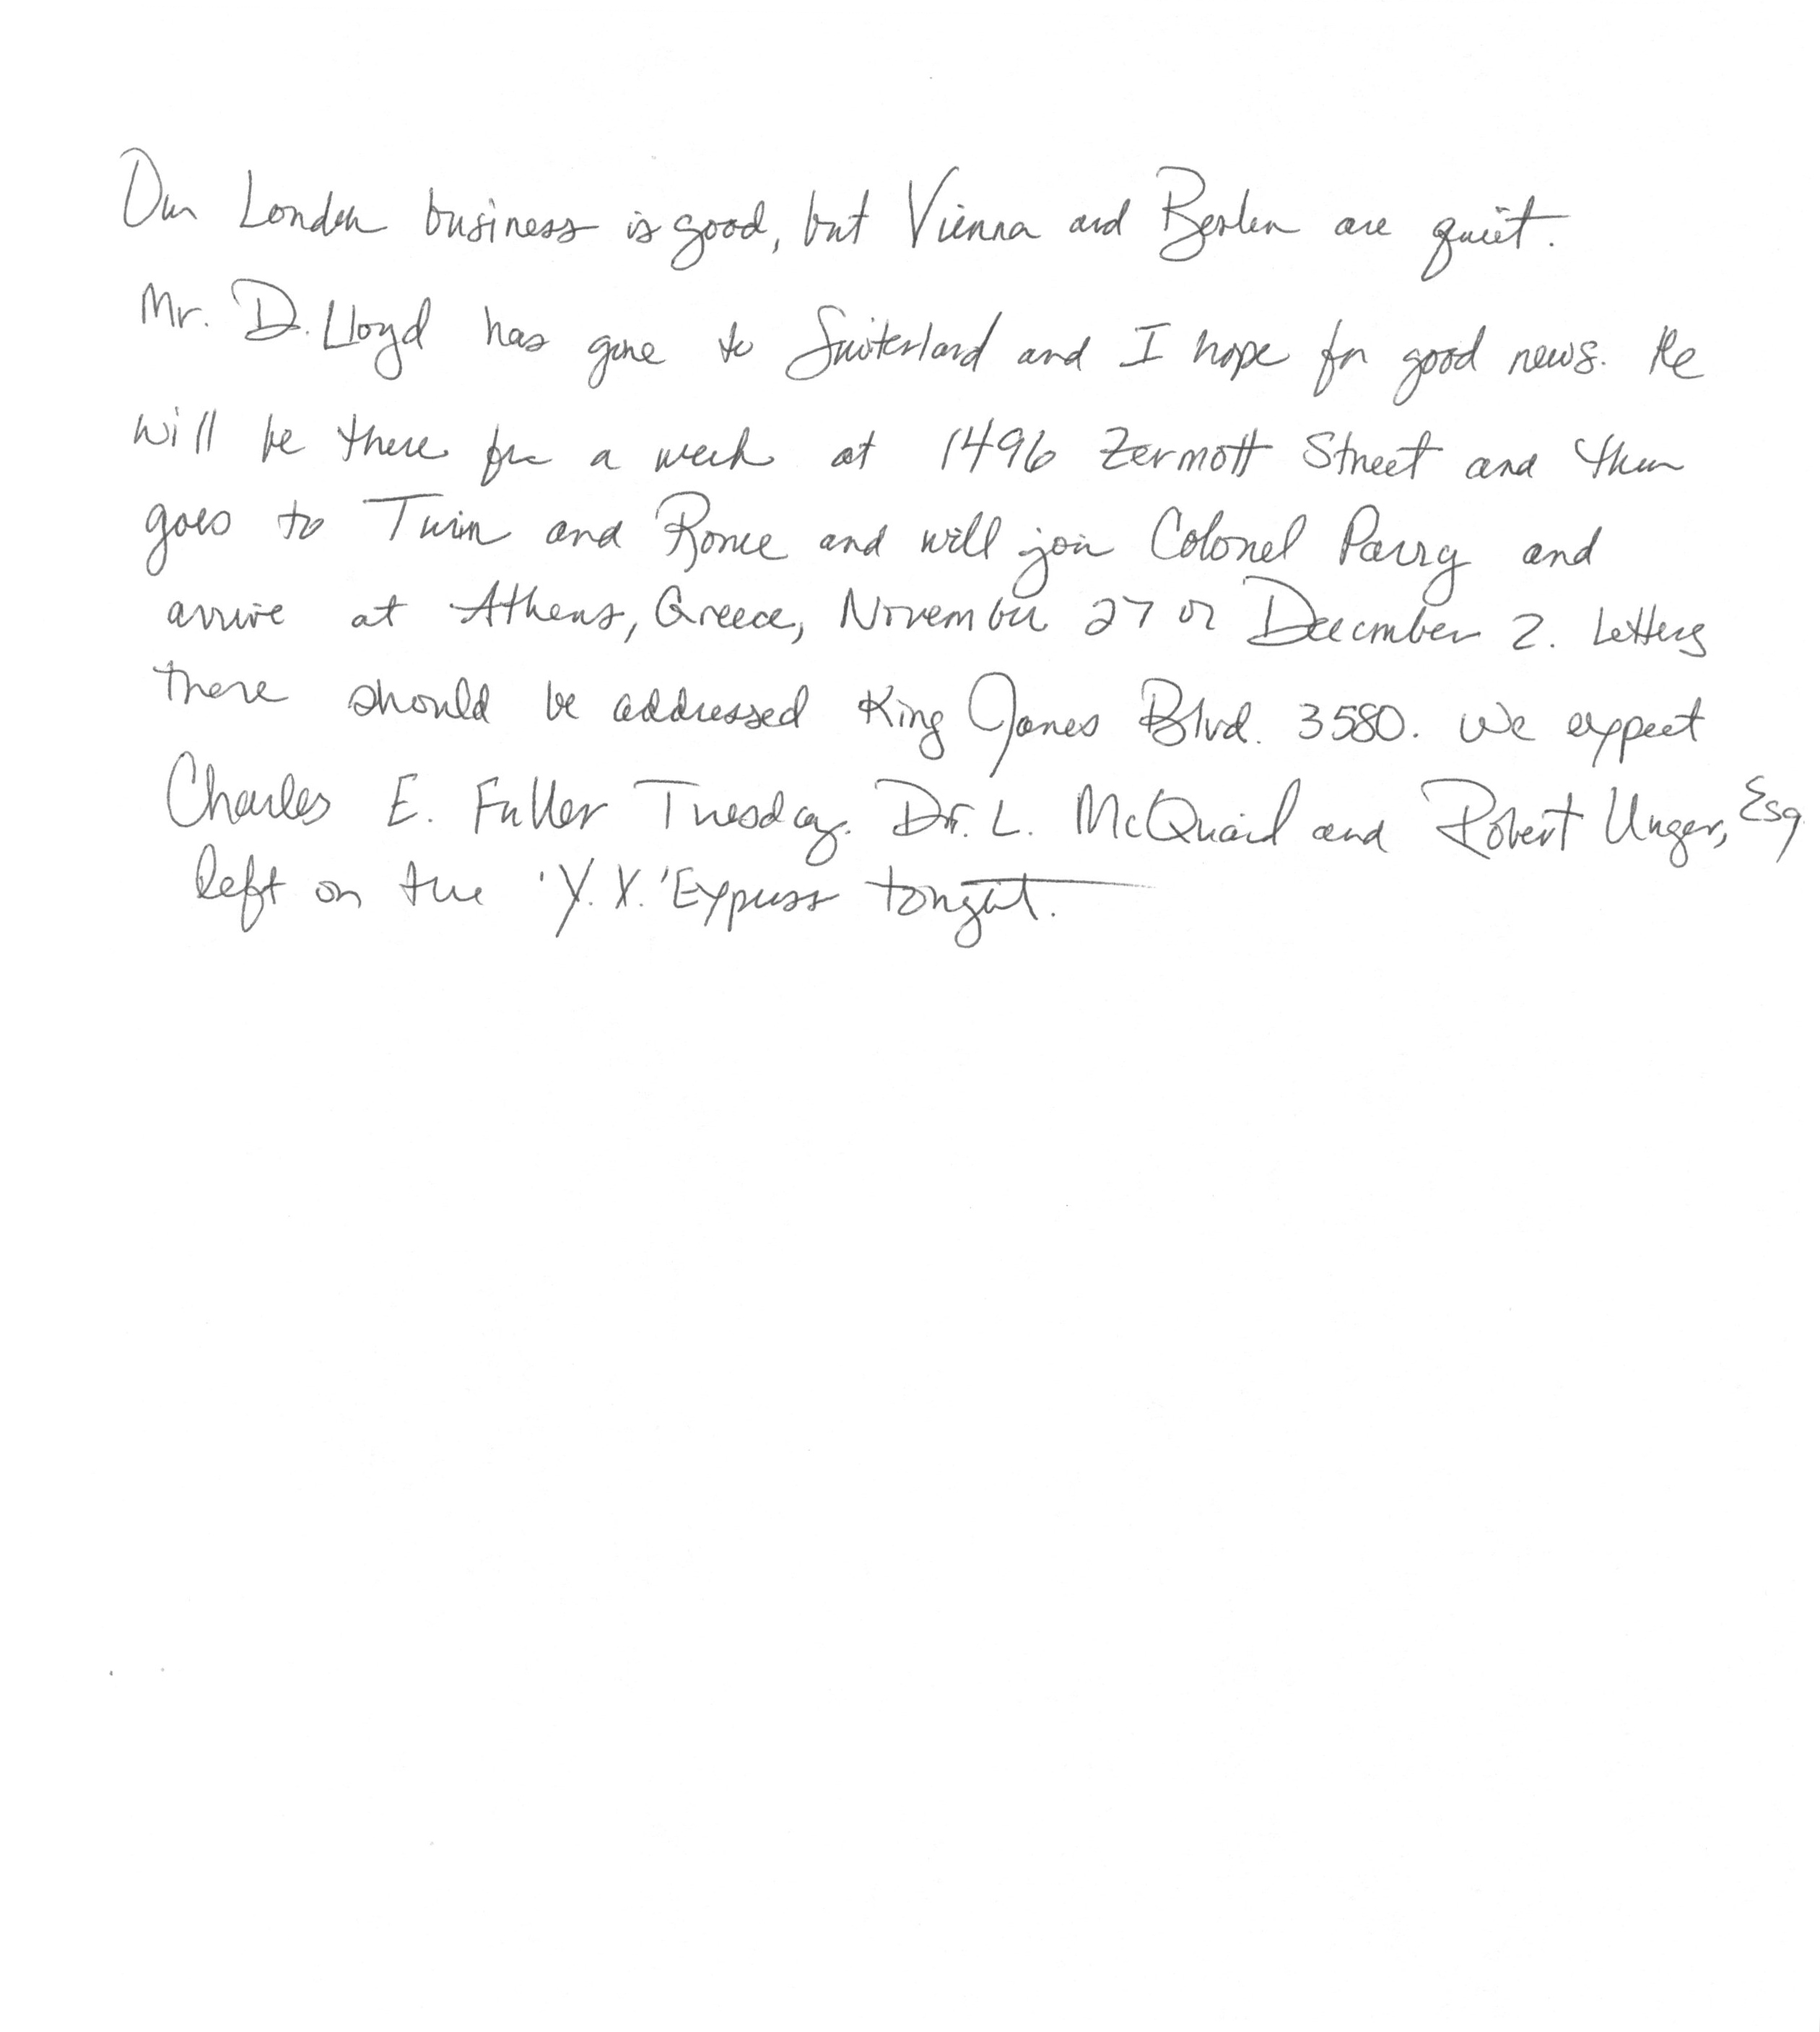 Our London business is good, but Vienna and Berlin are quiet.
Mr. D. Lloyd has gone to Switerland and I hope for good news. He
will be there for a week at 1496 Zermott Street and then
goes to Turin and Rome and will join Colonel Parry and
arrive at Athens, Greece, November 27 or December 2. Letters
there should be addressed King James Blvd. 3580. We expect
Charles E. Fuller Tuesday. Dr. L. McQuaid and Robert Unger, Esq
left on the 'Y.X.' Express tonight.